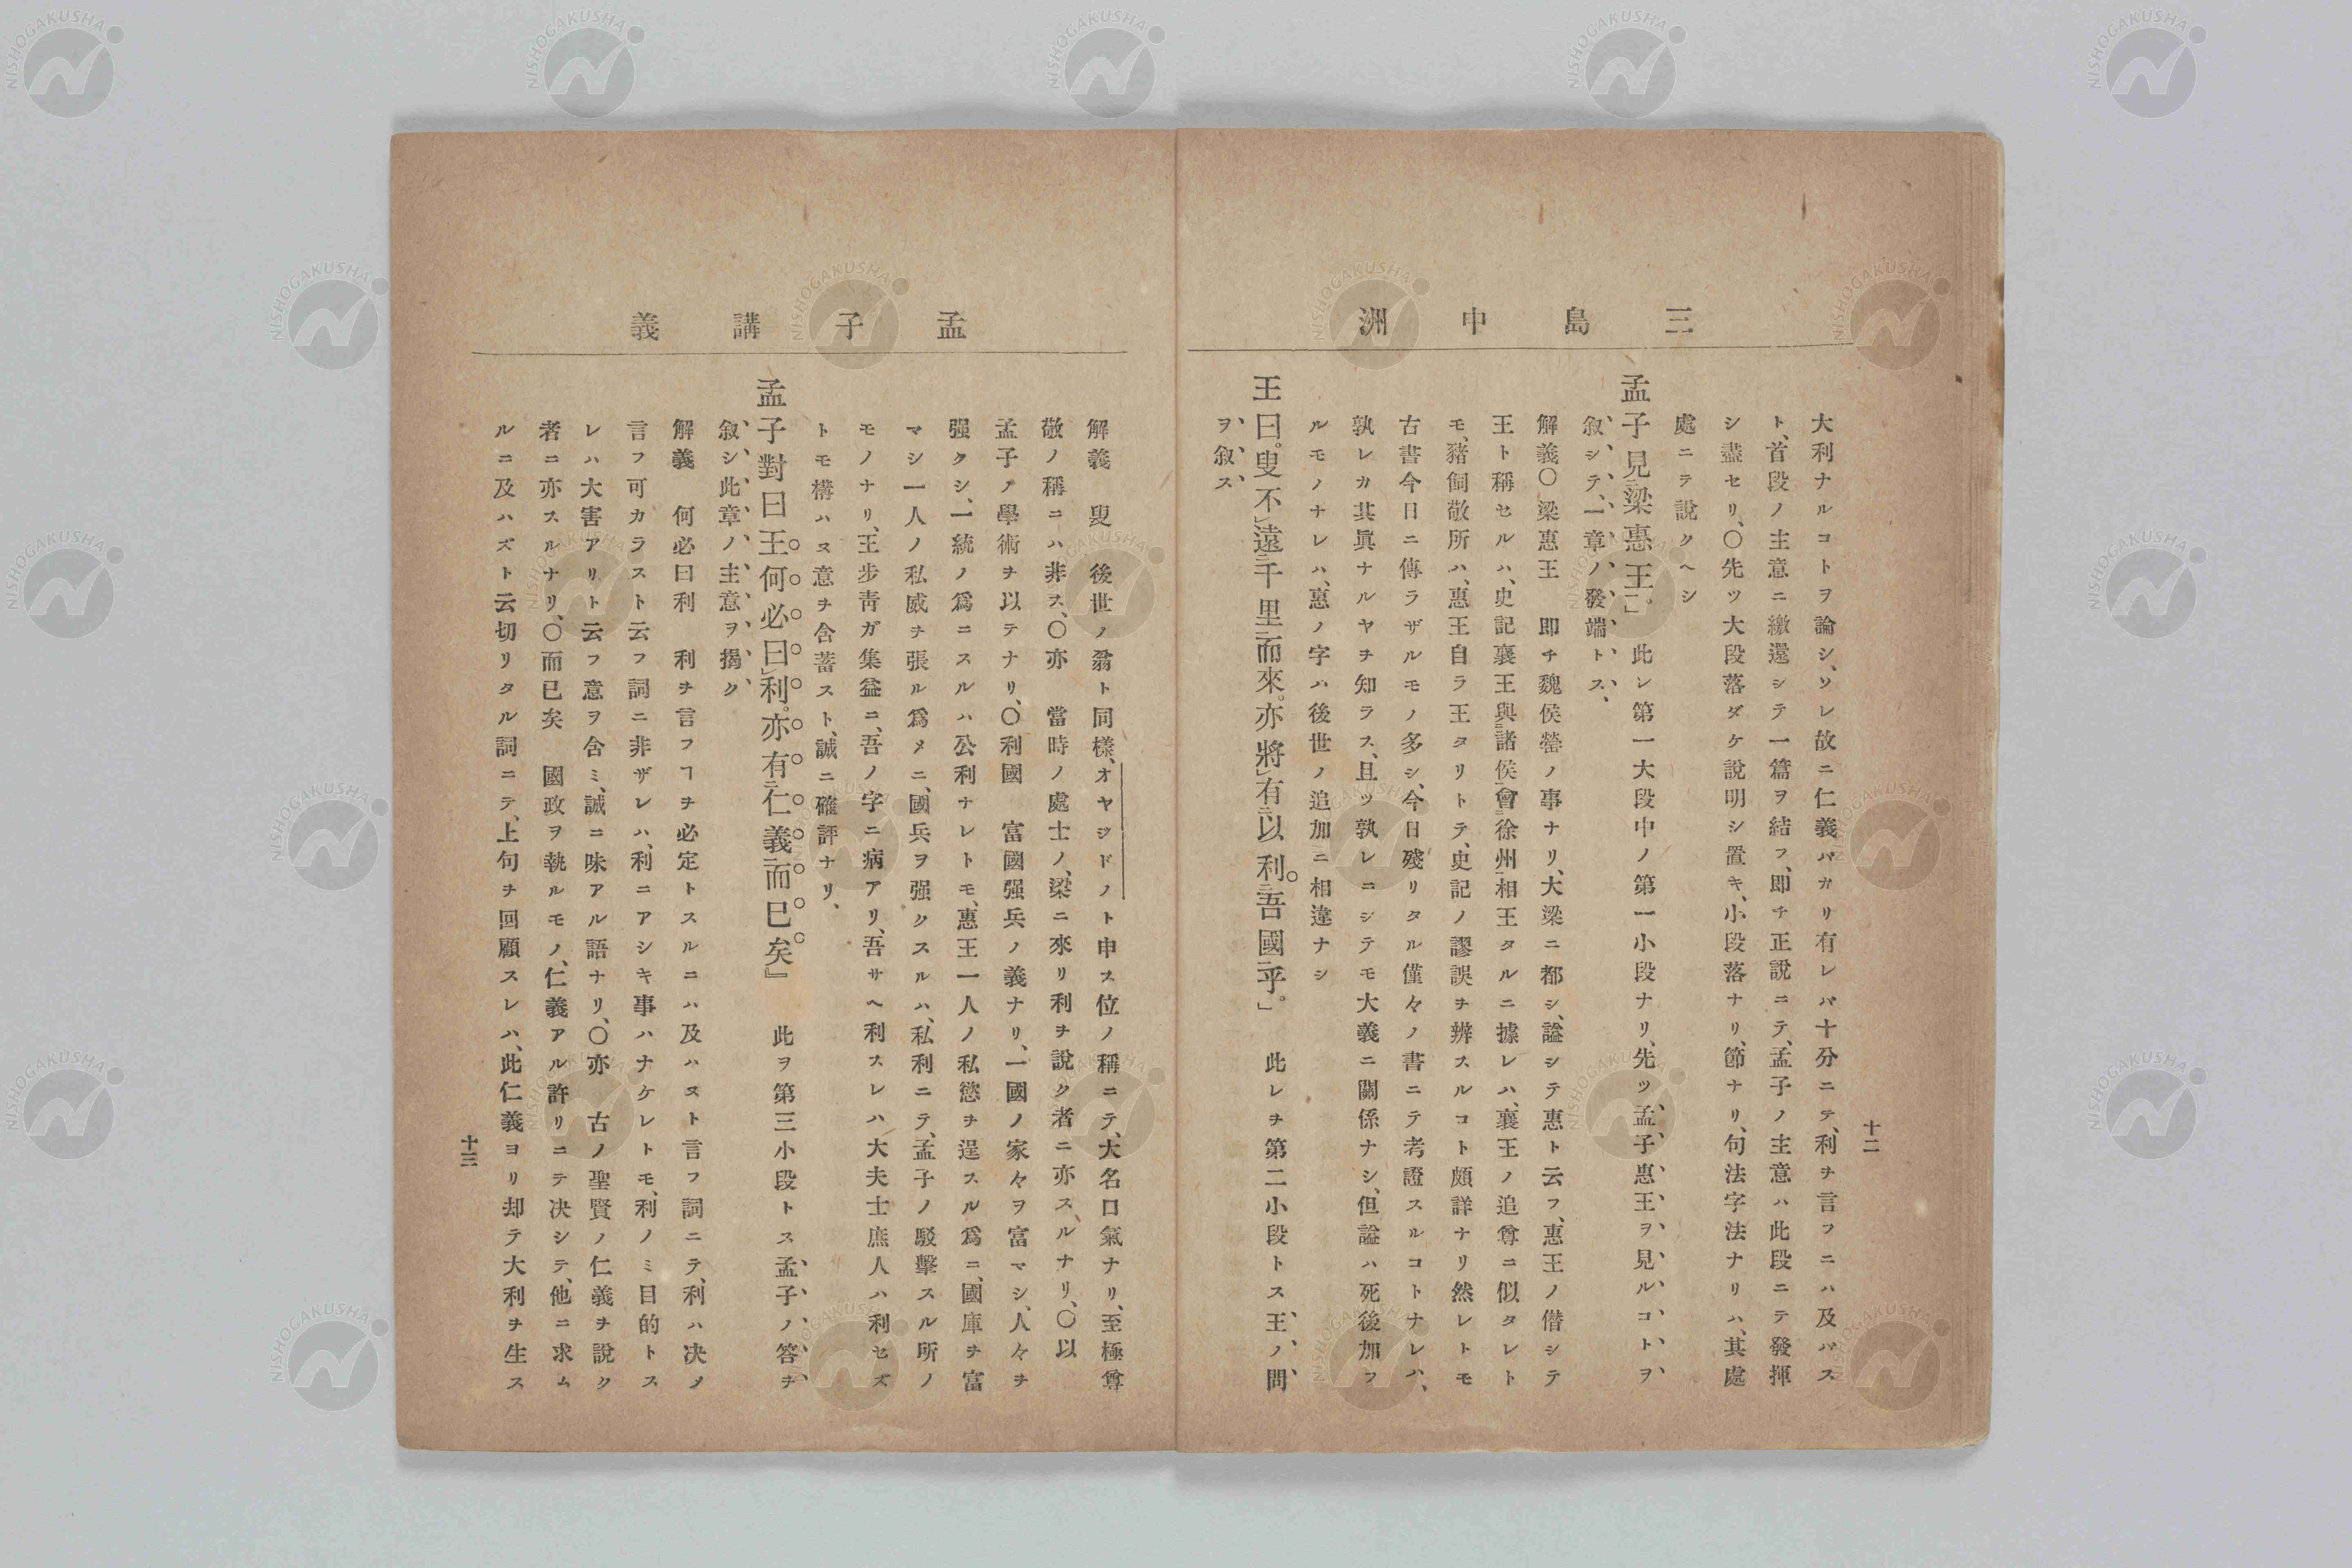 三島中洲
大利ナルコトヲ論シ、ソレ故ニ仁義バカリ有レバ十分ニテ、利ヲ言フニハ及バス
ト、首段ノ主意ニ繳還シテ一篇ヲ結フ、即チ正說ニテ、孟子ノ主意ハ此段ニテ發揮
シ盡セリ、〇先ツ大段落ダケ說明シ置キ、小段落ナリ、節ナリ、句法字法ナリハ、其處
處ニテ說クヘシ
孟子見梁惠王。」 此レ第一大段中ノ第一小段ナリ、先ツ孟子惠王ヲ見ルコトヲ
叙シテ、一章ノ發端トス、
解義〇梁惠王 即チ魏侯罃ノ事ナリ、大梁ニ都シ、謚シテ惠ト云フ、惠王ノ僭シテ
王ト稱セルハ、史記襄王與諸侯會徐州相王タルニ據レハ、襄王ノ追尊ニ似タレト
モ、豬飼敬所ハ、惠王自ラ王タリトテ、史記ノ謬誤ヲ辨スルコト頗詳ナリ然レトモ
古書今日ニ傳ラザルモノ多シ、今日殘リタル僅々ノ書ニテ考證スルコトナレハ、
孰レカ其眞ナルヤヲ知ラス、且ツ孰レニシテモ大義ニ關係ナシ、但謚ハ死後加フ
ルモノナレハ、惠ノ字ハ後世ノ追加ニ相違ナシ
王曰。叟不遠千里而來。亦將有以利吾國乎。」 此レヲ第二小段トス王ノ問
ヲ叙ス、
十二
孟子講義
解義 叟 後世ノ翁ト同樣、オヤヂドノト申ス位ノ稱ニテ、大名口氣ナリ、至極尊
敬ノ稱ニハ非ス、〇亦 當時ノ處士ノ、梁ニ來リ利ヲ說ク者ニ亦スルナリ、〇以
孟子ノ學術ヲ以テナリ、〇利國 富國强兵ノ義ナリ、一國ノ家々ヲ富マシ、人々ヲ
强クシ、一統ノ爲ニスルハ公利ナレトモ、惠王一人ノ私慾ヲ逞スル爲ニ、國庫ヲ富
マシ一人ノ私威ヲ張ル爲メニ、國兵ヲ强クスルハ、私利ニテ、孟子ノ駁擊スル所ノ
モノナリ、王步靑ガ集益ニ、吾ノ字ニ病アリ、吾サヘ利スレハ大夫士庶人ハ利セズ
トモ構ハヌ意ヲ含蓄スト、誠ニ確評ナリ、
孟子對曰王何必曰利。亦有仁義而已矣』 此ヲ第三小段トス孟子ノ答ヲ
叙シ、此章ノ主意ヲ揭ク
解義 何必曰利 利ヲ言フヿヲ必定トスルニハ及ハヌト言フ詞ニテ、利ハ決メ
言フ可カラスト云フ詞ニ非ザレハ、利ニアシキ事ハナケレトモ、利ノミ目的トス
レハ大害アリト云フ意ヲ含ミ、誠ニ味アル語ナリ、〇亦 古ノ聖賢ノ仁義ヲ說ク
者ニ亦スルナリ、〇而已矣 國政ヲ執ルモノ、仁義アル許リニテ決シテ、他ニ求ム
ルニ及ハズト云切リタル詞ニテ、上句ヲ回顧スレハ、此仁義ヨリ却テ大利ヲ生ス
十三
NISHOGAKUSHA